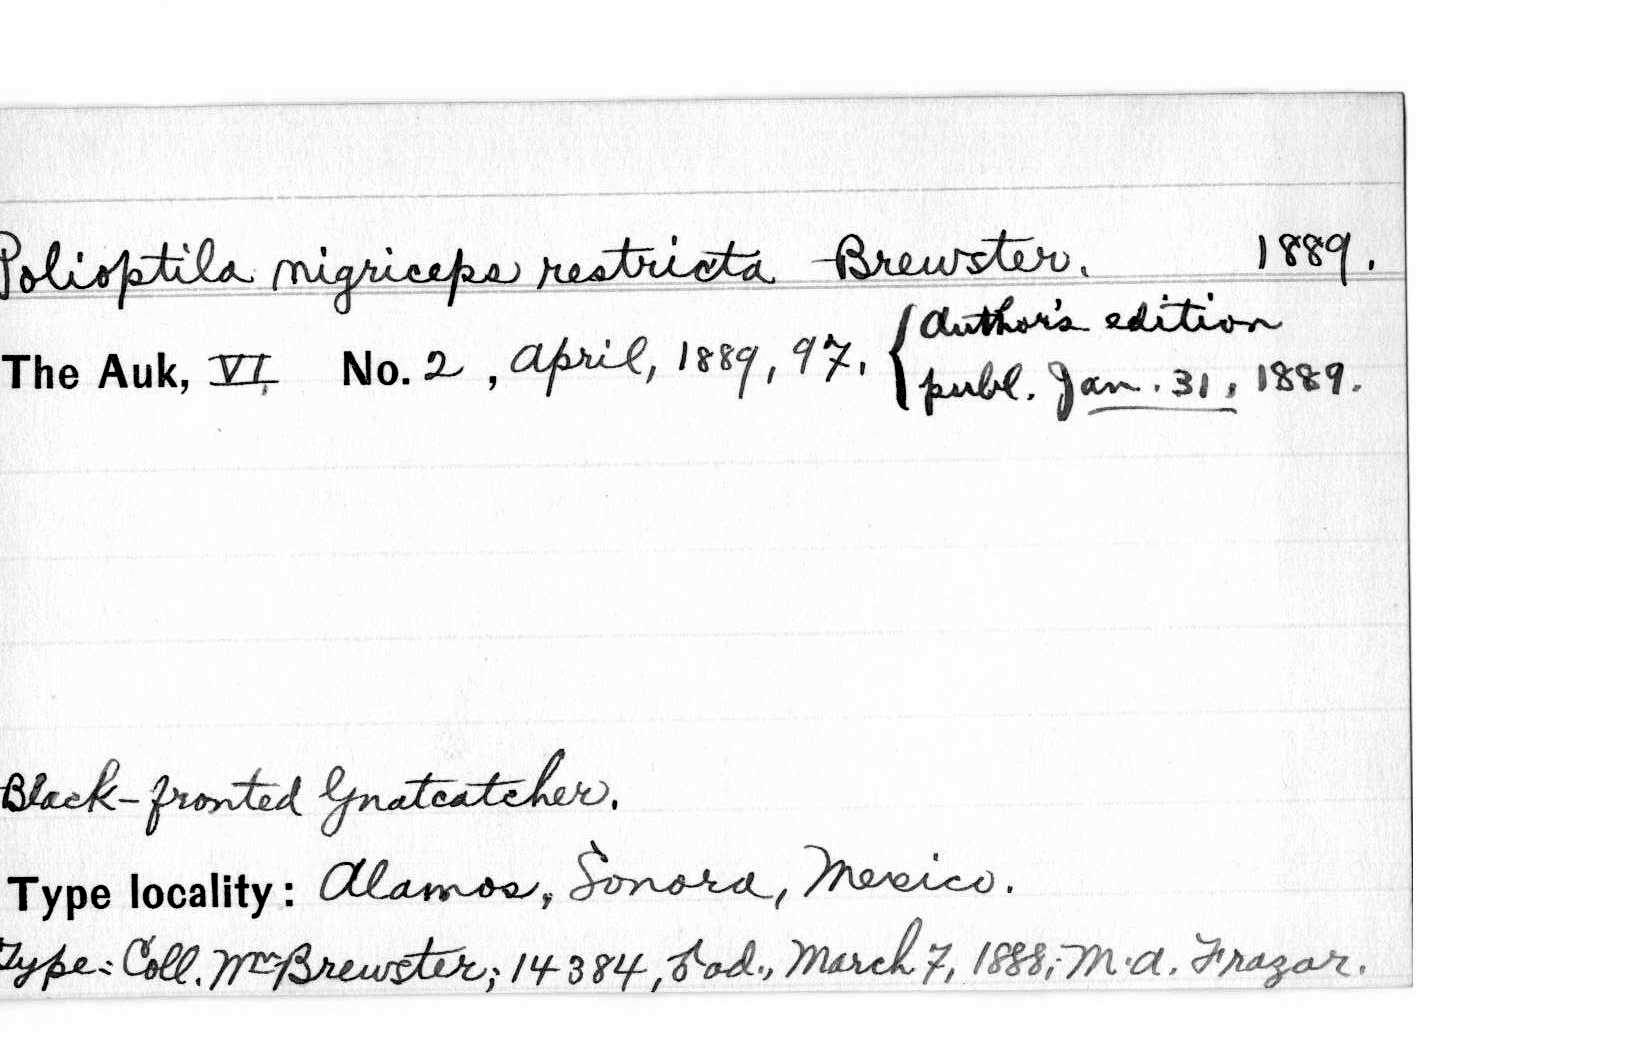 Polioptila nigriceps restricta Brewster. 1889.
The Auk, VI, No. 2, April, 1889, 97. { Author's edition
publ. Jan. 31, 1889.
Black-fronted Gnatcatcher.
Type locality: Alamos, Sonora, Mexico.
Type: Coll. Wm Brewster; 14384, ♂ ad., March 7, 1888; M.A. Frazar.